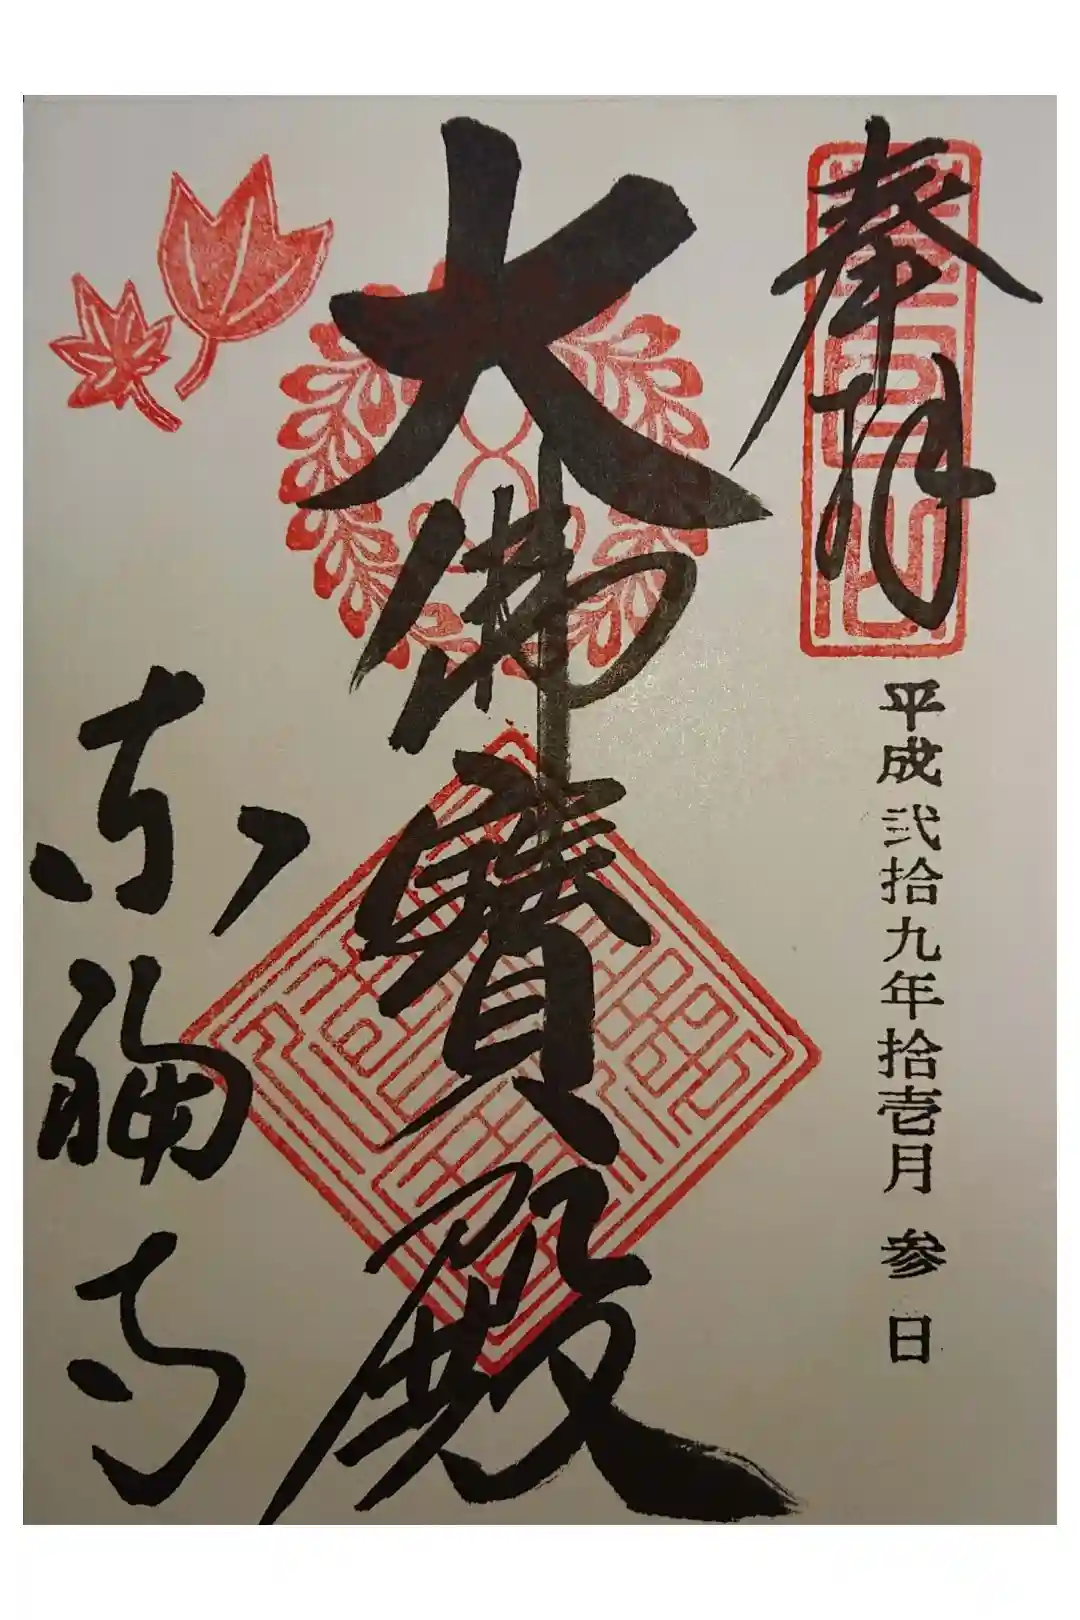 奉拝
平成弐拾九年拾壱月参日
大佛寶殿
東福寺